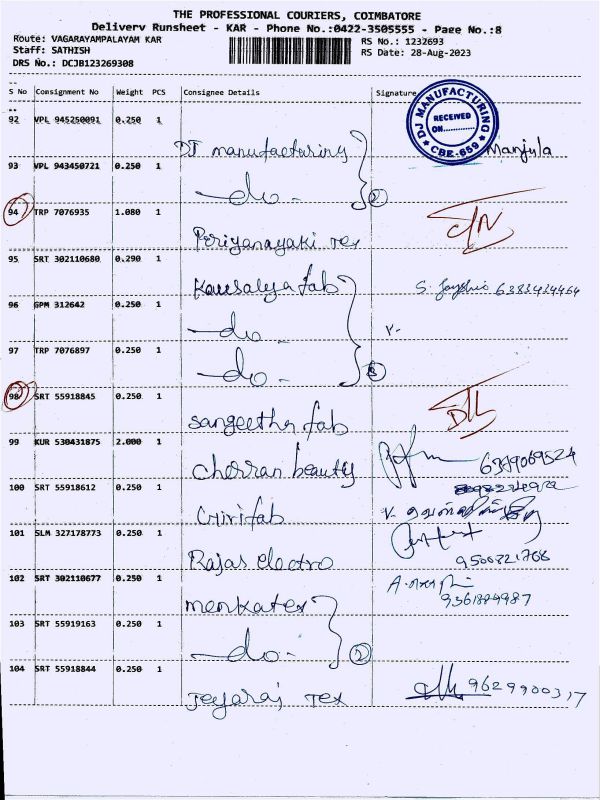 THE PROFESSIONAL COURIERS, COIMBATORE
Delivery Runsheet - KAR - Phone No.:0422-3505555 - Page No.:8
Route: VAGARAYAMPALAYAM KAR
RS No.: 1232693
Staff: SATHISH
RS Date: 28-Aug-2023
DRS No.: DCJB123269308
S No Consignment No Weight PCS Consignee Details Signature
92 VPL 945250091 0.250 1
DJ MANUFACTURING
RECEIVED
ON............
CBE-659
DJ manufacturing Manjula
93 VPL 943450721 0.250 1
-do- 2
94 TRP 7076935 1.080 1
Periyanayaki Tex
95 SRT 302110680 0.290 1
Kausalya fab 6383434464
96 GPM 312642 0.250 1
-do-
97 TRP 7076897 0.250 1
-do- 3
98 SRT 55918845 0.250 1
sangeetha fab
99 KUR 530431875 2.000 1
cherran beauty 6379069524
100 SRT 55918612 0.250 1
101 SLM 327178773 0.250 1
Rajas electro 9500821768
102 SRT 302110677 0.250 1
menkatex 9361884987
103 SRT 55919163 0.250 1
-do- 2
104 SRT 55918844 0.250 1
Jeyaraj Tex 9629900317